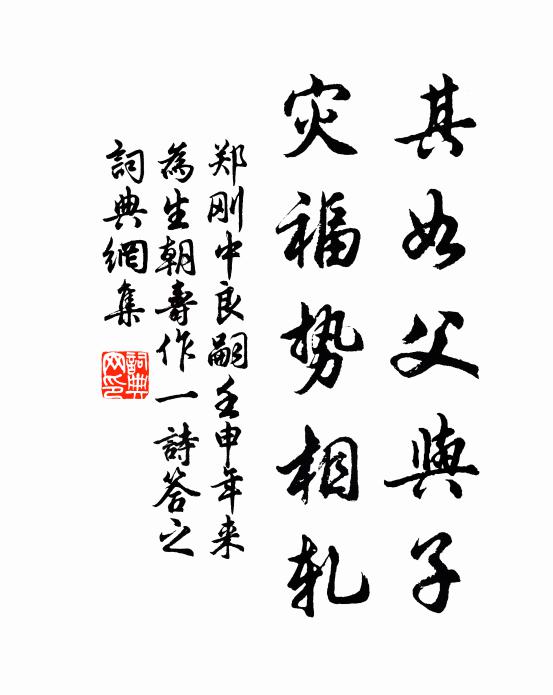 其如父與子
灾福势相轧
郑刚中良嗣壬申年来
為生朝壽作一詩答之
詞典網集
詞典網印